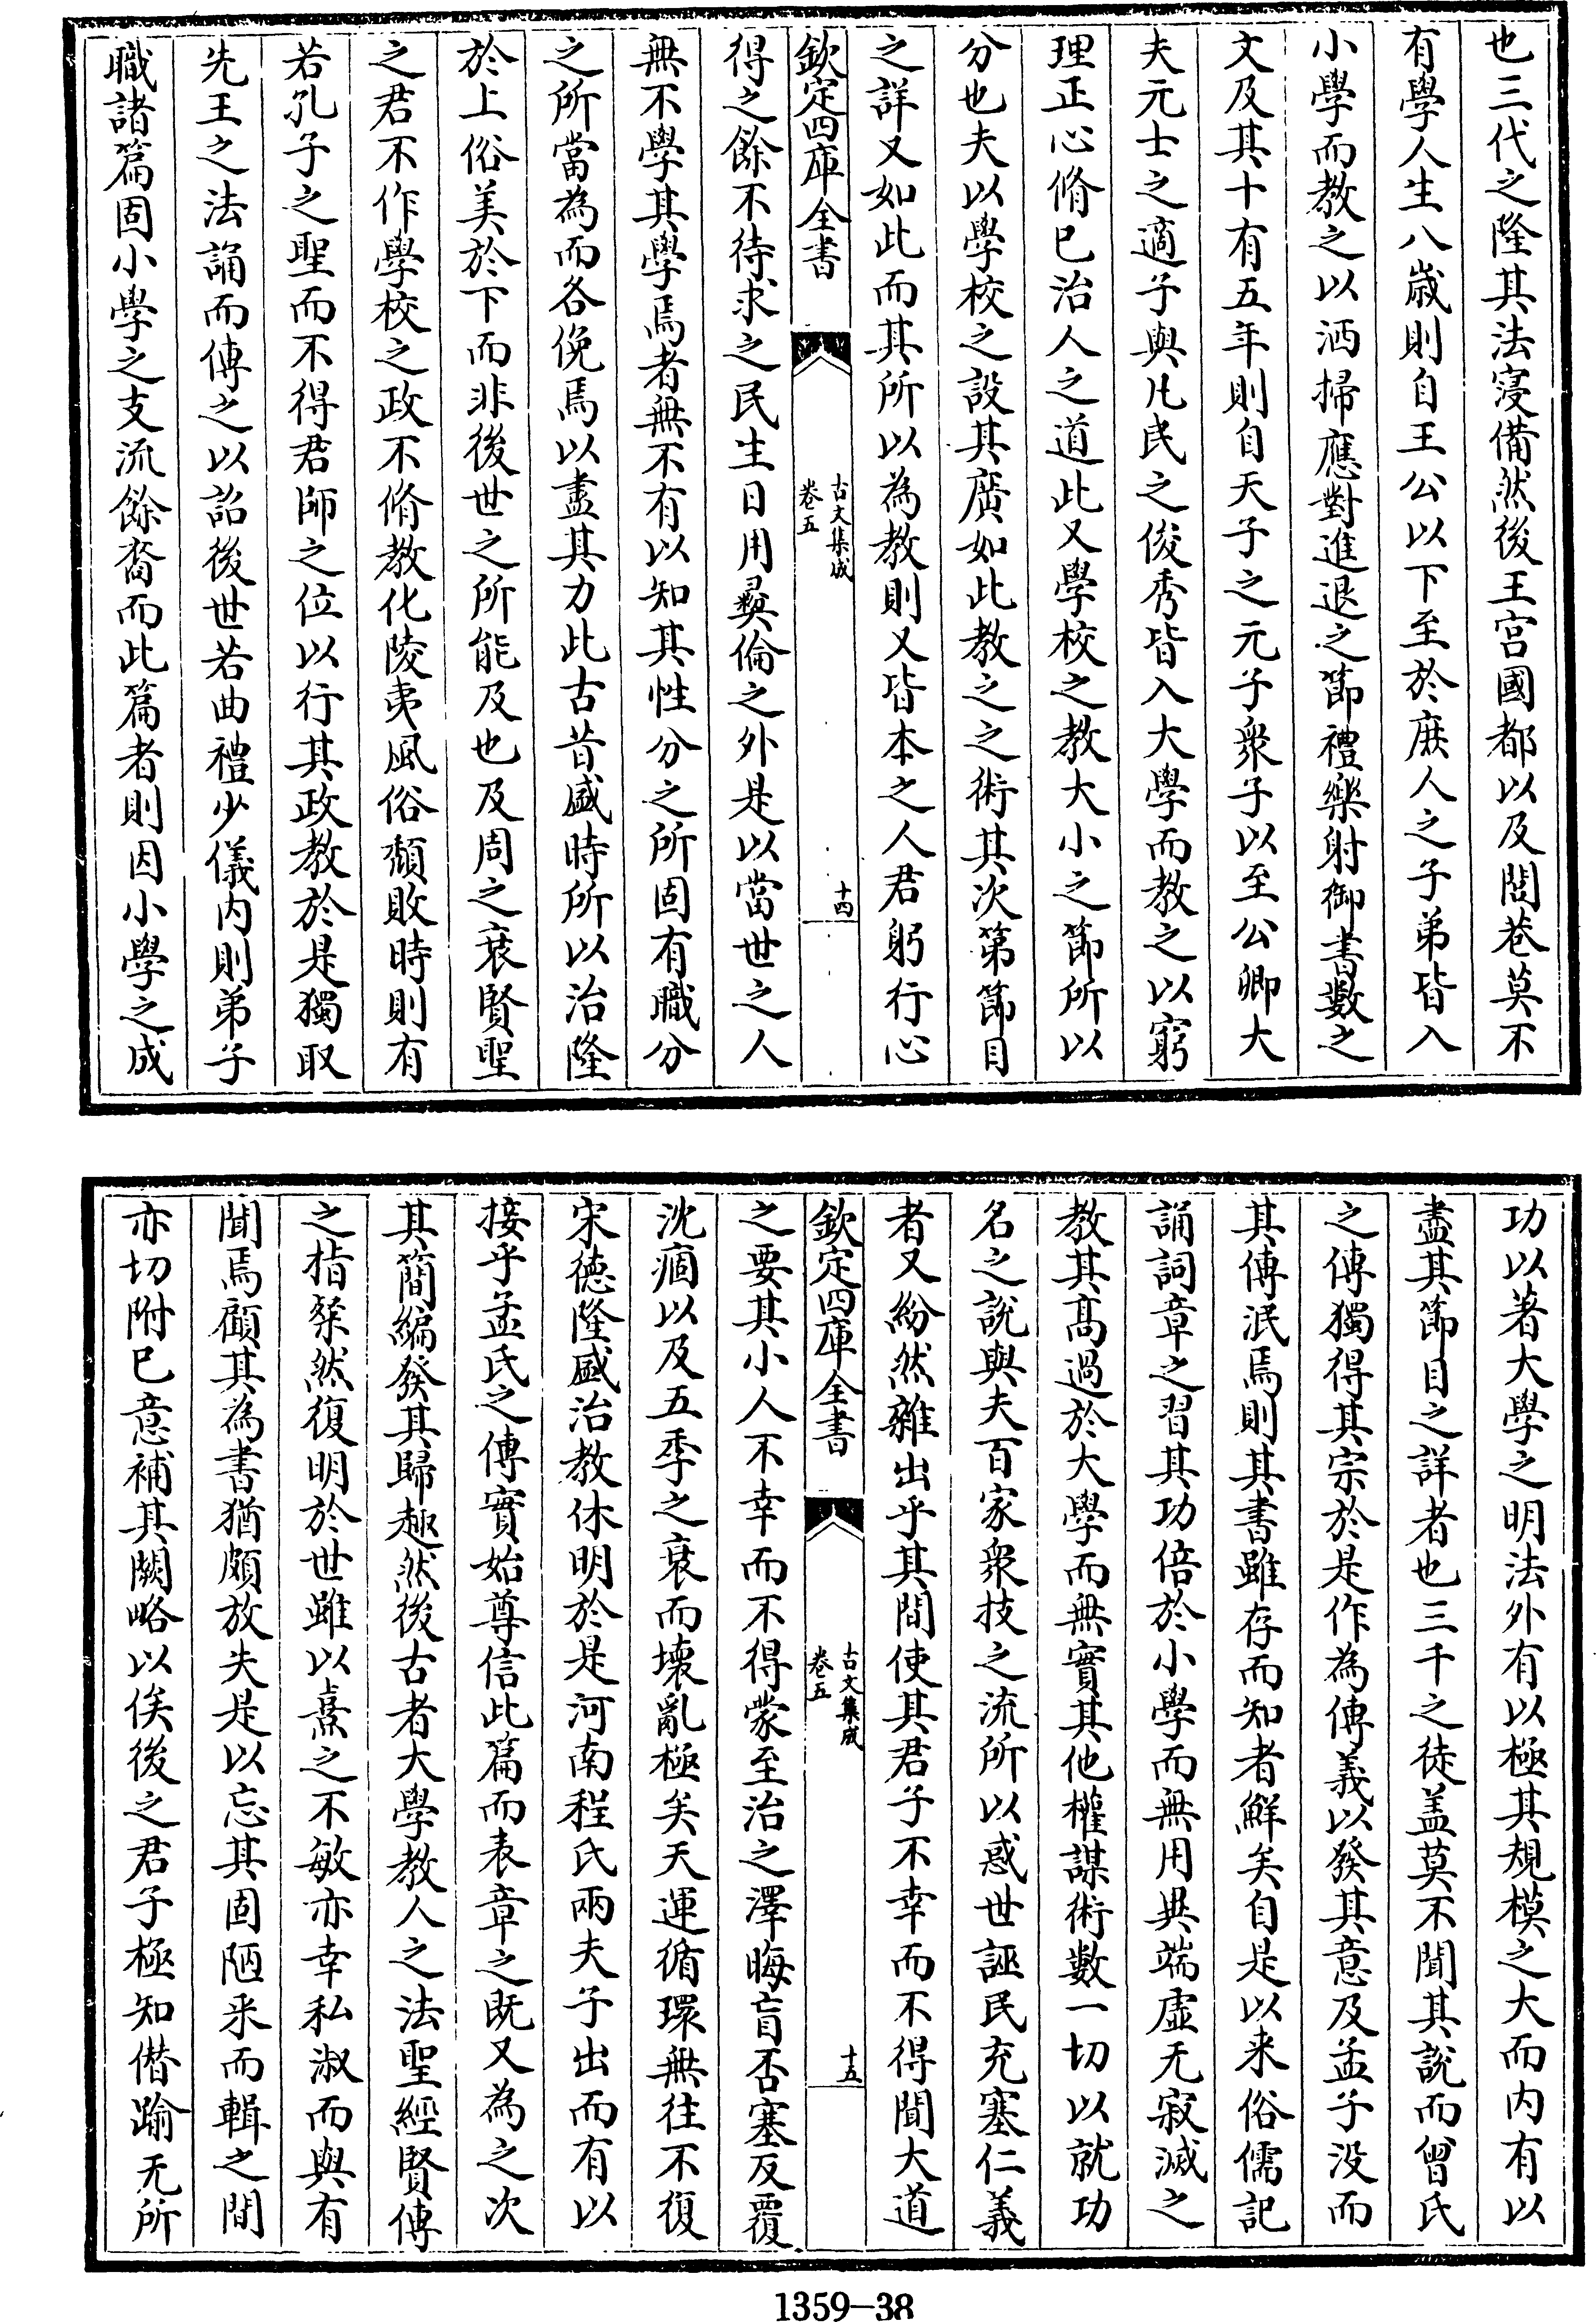 也三代之隆其法寖備然後王宫國都以及閭巷莫不
有學人生八歳則自王公以下至於庶人之子弟皆入
小學而教之以洒掃應對進退之節禮樂射御書數之
文及其十有五年則自天子之元子衆子以至公卿大
夫元士之適子與凡民之俊秀皆入大學而教之以窮
理正心脩已治人之道此又學校之教大小之節所以
分也夫以學校之設其廣如此教之之術其次第節目
之詳又如此而其所以為教則又皆本之人君躬行心
欽定四庫全書
古文集成
卷五
十四
得之餘不待求之民生日用彞倫之外是以當世之人
無不學其學焉者無不有以知其性分之所固有職分
之所當為而各俛焉以盡其力此古昔盛時所以治隆
於上俗美於下而非後世之所能及也及周之衰賢聖
之君不作學校之政不脩教化陵夷風俗頽敗時則有
若孔子之聖而不得君師之位以行其政教於是獨取
先王之法誦而傳之以詔後世若曲禮少儀内則弟子
職諸篇固小學之支流餘裔而此篇者則因小學之成
功以著大學之明法外有以極其規模之大而内有以
盡其節目之詳者也三千之徒盖莫不聞其說而曾氏
之傳獨得其宗於是作為傳義以發其意及孟子没而
其傳泯焉則其書雖存而知者鮮矣自是以来俗儒記
誦詞章之習其功倍於小學而無用異端虚无寂滅之
教其髙過於大學而無實其他權謀術數一切以就功
名之說與夫百家衆技之流所以惑世誣民充塞仁義
者又紛然雜出乎其間使其君子不幸而不得聞大道
欽定四庫全書
古文集成
卷五
十五
之要其小人不幸而不得蒙至治之澤晦盲否塞反覆
沈痼以及五季之衰而壞亂極矣天運循環無往不復
宋德隆盛治教休明於是河南程氏兩夫子出而有以
接乎孟氏之傳實始尊信此篇而表章之既又為之次
其簡編發其歸趣然後古者大學教人之法聖經賢傳
之指粲然復明於世雖以熹之不敏亦幸私淑而與有
聞焉顧其為書猶頗放失是以忘其固陋采而輯之間
亦切附已意補其闕略以俟後之君子極知僣踰无所
1359—38